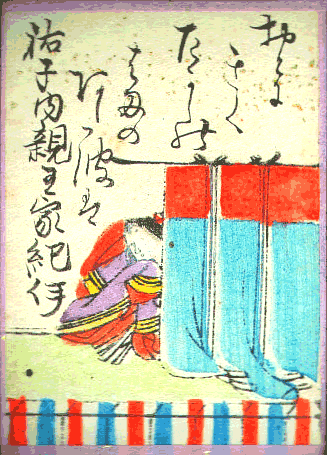 おとに
きく
たかしの
はまの
あだ波は
祐子内親王家紀伊